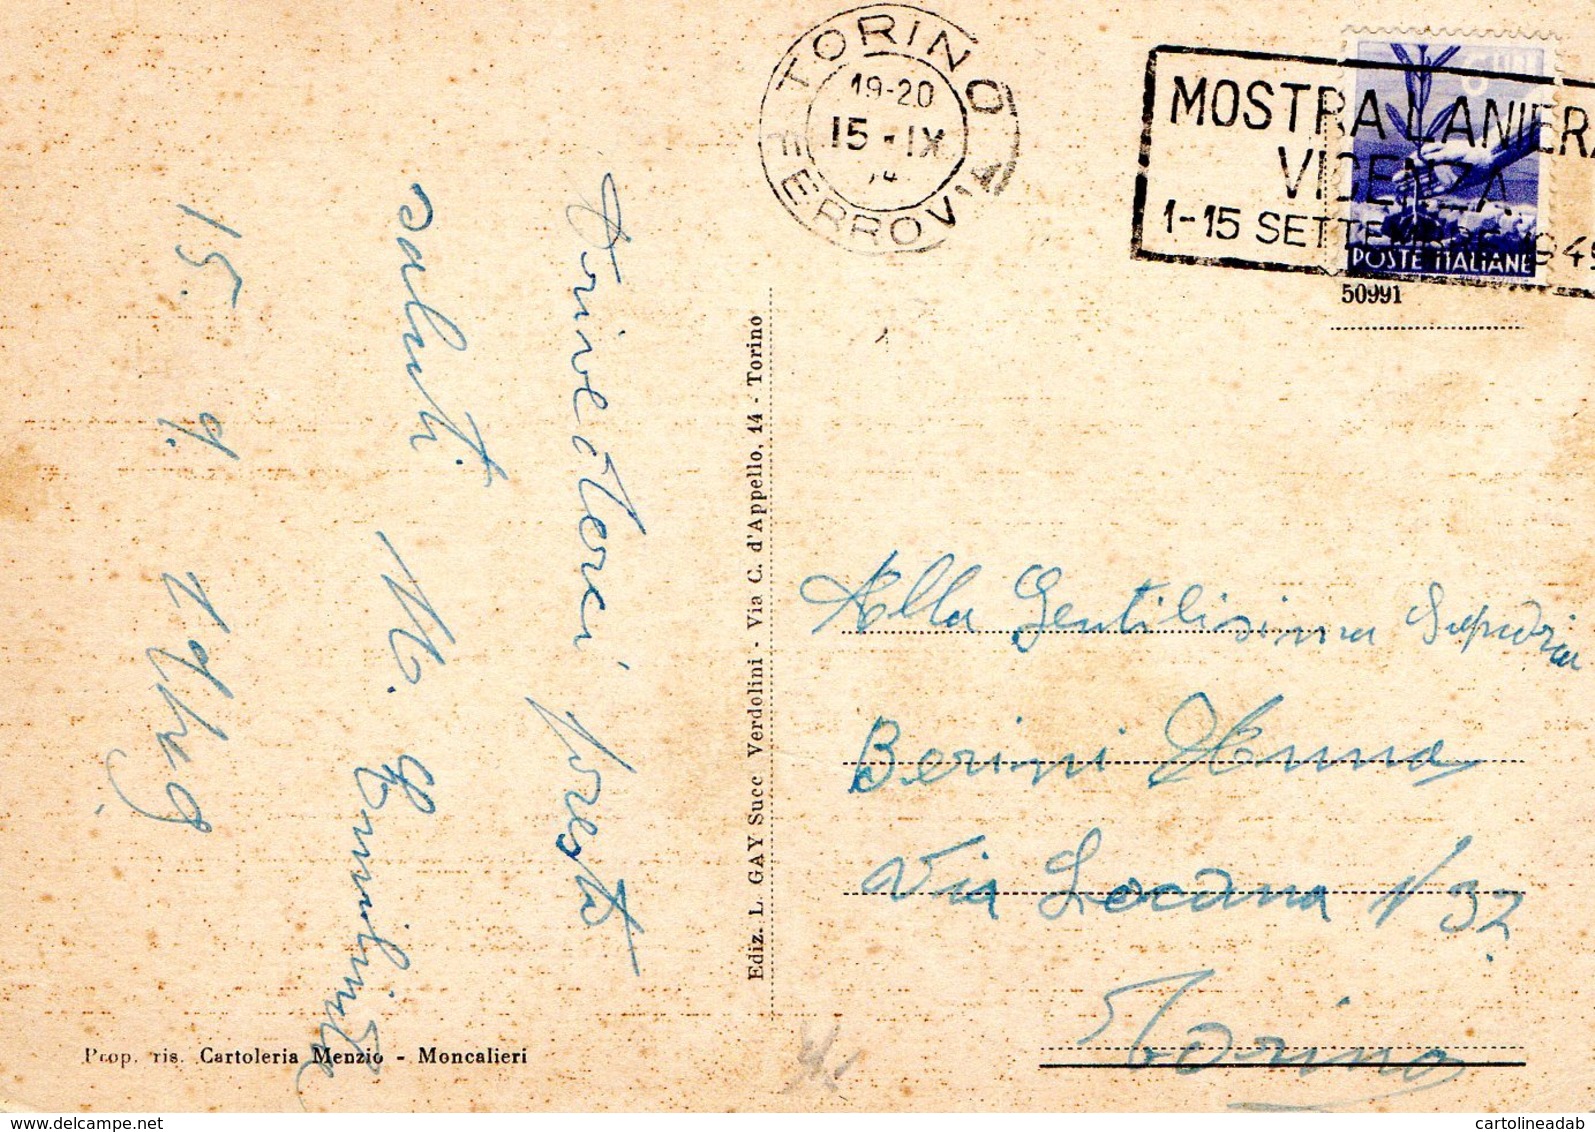 TORINO FERROVIA
19-20
15-IX
MOSTRA LANIERA
VICENZA
1-15 SETTEMBRE 1949
6 LIRE
POSTE ITALIANE
50991
Arrivederci presto
saluti
M. Ermelinda
15. 9. 1949
Ediz. L. GAY Succ Verdolini - Via C. d'Appello, 14 - Torino
Alla Gentilisima
Berini Anna
Via Locana 1/32
Torino
Prop. ris. Cartoleria Menzio - Moncalieri
www.delcampe.net
cartolineadab